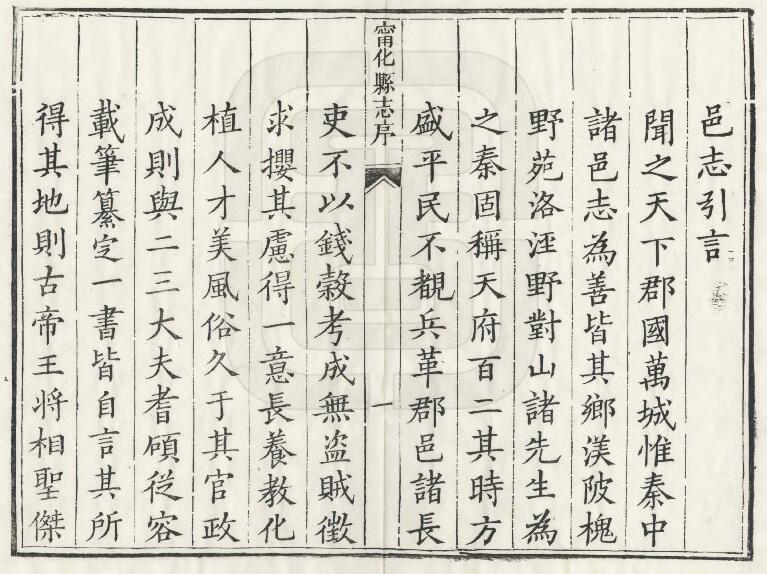 邑志引言
聞之天下郡國萬城惟秦中
諸邑志為善皆其鄉渼陂槐
野苑洛涇野對山諸先生為
之秦固稱天府百二其時方
盛平民不覩兵革郡邑諸長
甯化縣志序
一
吏不以錢穀考成無盗賊徵
求攖其慮得一意長養教化
植人才美風俗久于其官政
成則與二三大夫耆碩從容
載筆纂定一書皆自言其所
得其地則古帝王将相聖傑